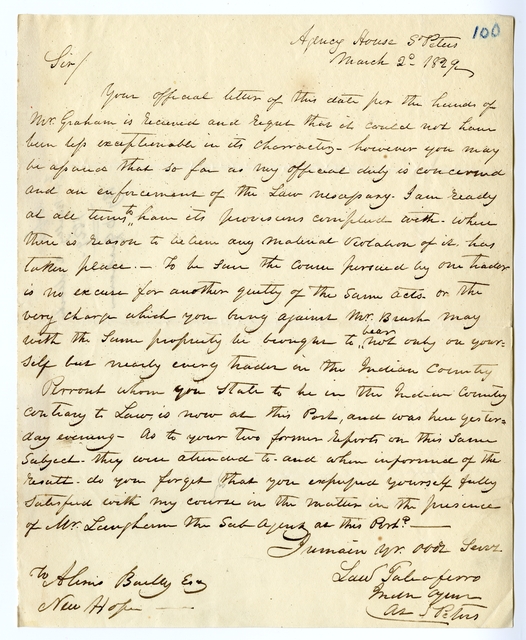 100
Agency House St Peters
March 2d 1829
Sir/
Your official letter of this date per the hands of
Mr. Graham is Recieved and Regret that it could not have
been less exceptionable in its character - however you may
be assured that so far as my official duty is concerned
and an enforcement of the Law necessary. I am Ready
at all times to have its provisions complied with - where
there is Reason to believe any material Violation of it has
taken place. - To be sure the course persued by one trader
is no excuse for another guilty of the Same acts. or the
very charge which you bring against Mr. Brush may
with the Same propriety be brought to bear not only on your=
self but nearly every trader in the Indian Country
Perront whom you State to be in the Indian Country
contrary to Law, is now at this Post, and was here yester=
day evening - As to your two former Reports on this Same
Subject - they were attended to - and when informed of the
Result - do you forget that you expressed yourself fully
Satisfied with my course in the matter in the presence
of Mr. Langham the Sub Agent at this Post. -
I remain yr. obdt Servt
Law Taliaferro
Indn Agent
At St Peters
To Alexis Bailly Esq
New Hope